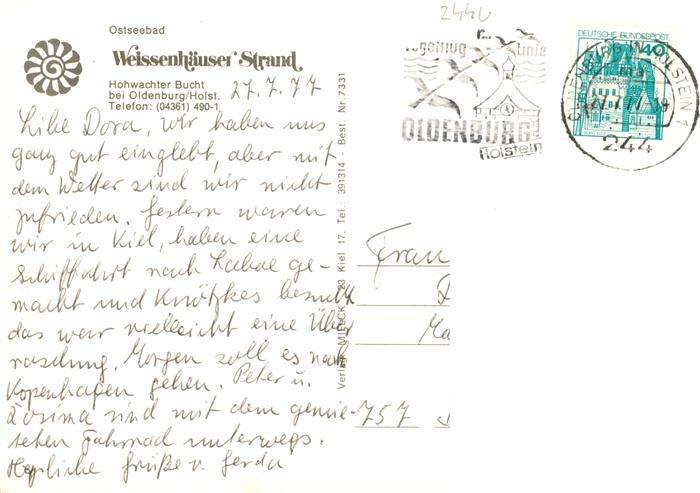 2440
Ostseebad
Weissenhäuser Strand
Hohwachter Bucht
bei Oldenburg/Holst.
Telefon: (04361) 490-1
27.7.77
Liebe Dora, wir haben uns
ganz gut eingelebt, aber mit
dem Wetter sind wir nicht
zufrieden. Gestern waren
wir in Kiel, haben eine
Schiffahrt nach Laboe ge-
macht und Knötzkes besucht
das war vielleicht eine Über
raschung. Morgen soll es nach
Kopenhagen gehen. Peter u.
Rosina sind mit dem gemie-
teten Fahrrad unterwegs.
Herzliche Grüße v. Gerda
Vogelfluglinie
OLDENBURG
Holstein
DEUTSCHE BUNDESPOST
40
OLDENBURG IN HOLSTEIN 1
27.7.77-18
244
Frau
Ma
757
391314 - Best. Nr. 7331
23 Kiel 17. Tel.:
Verlag